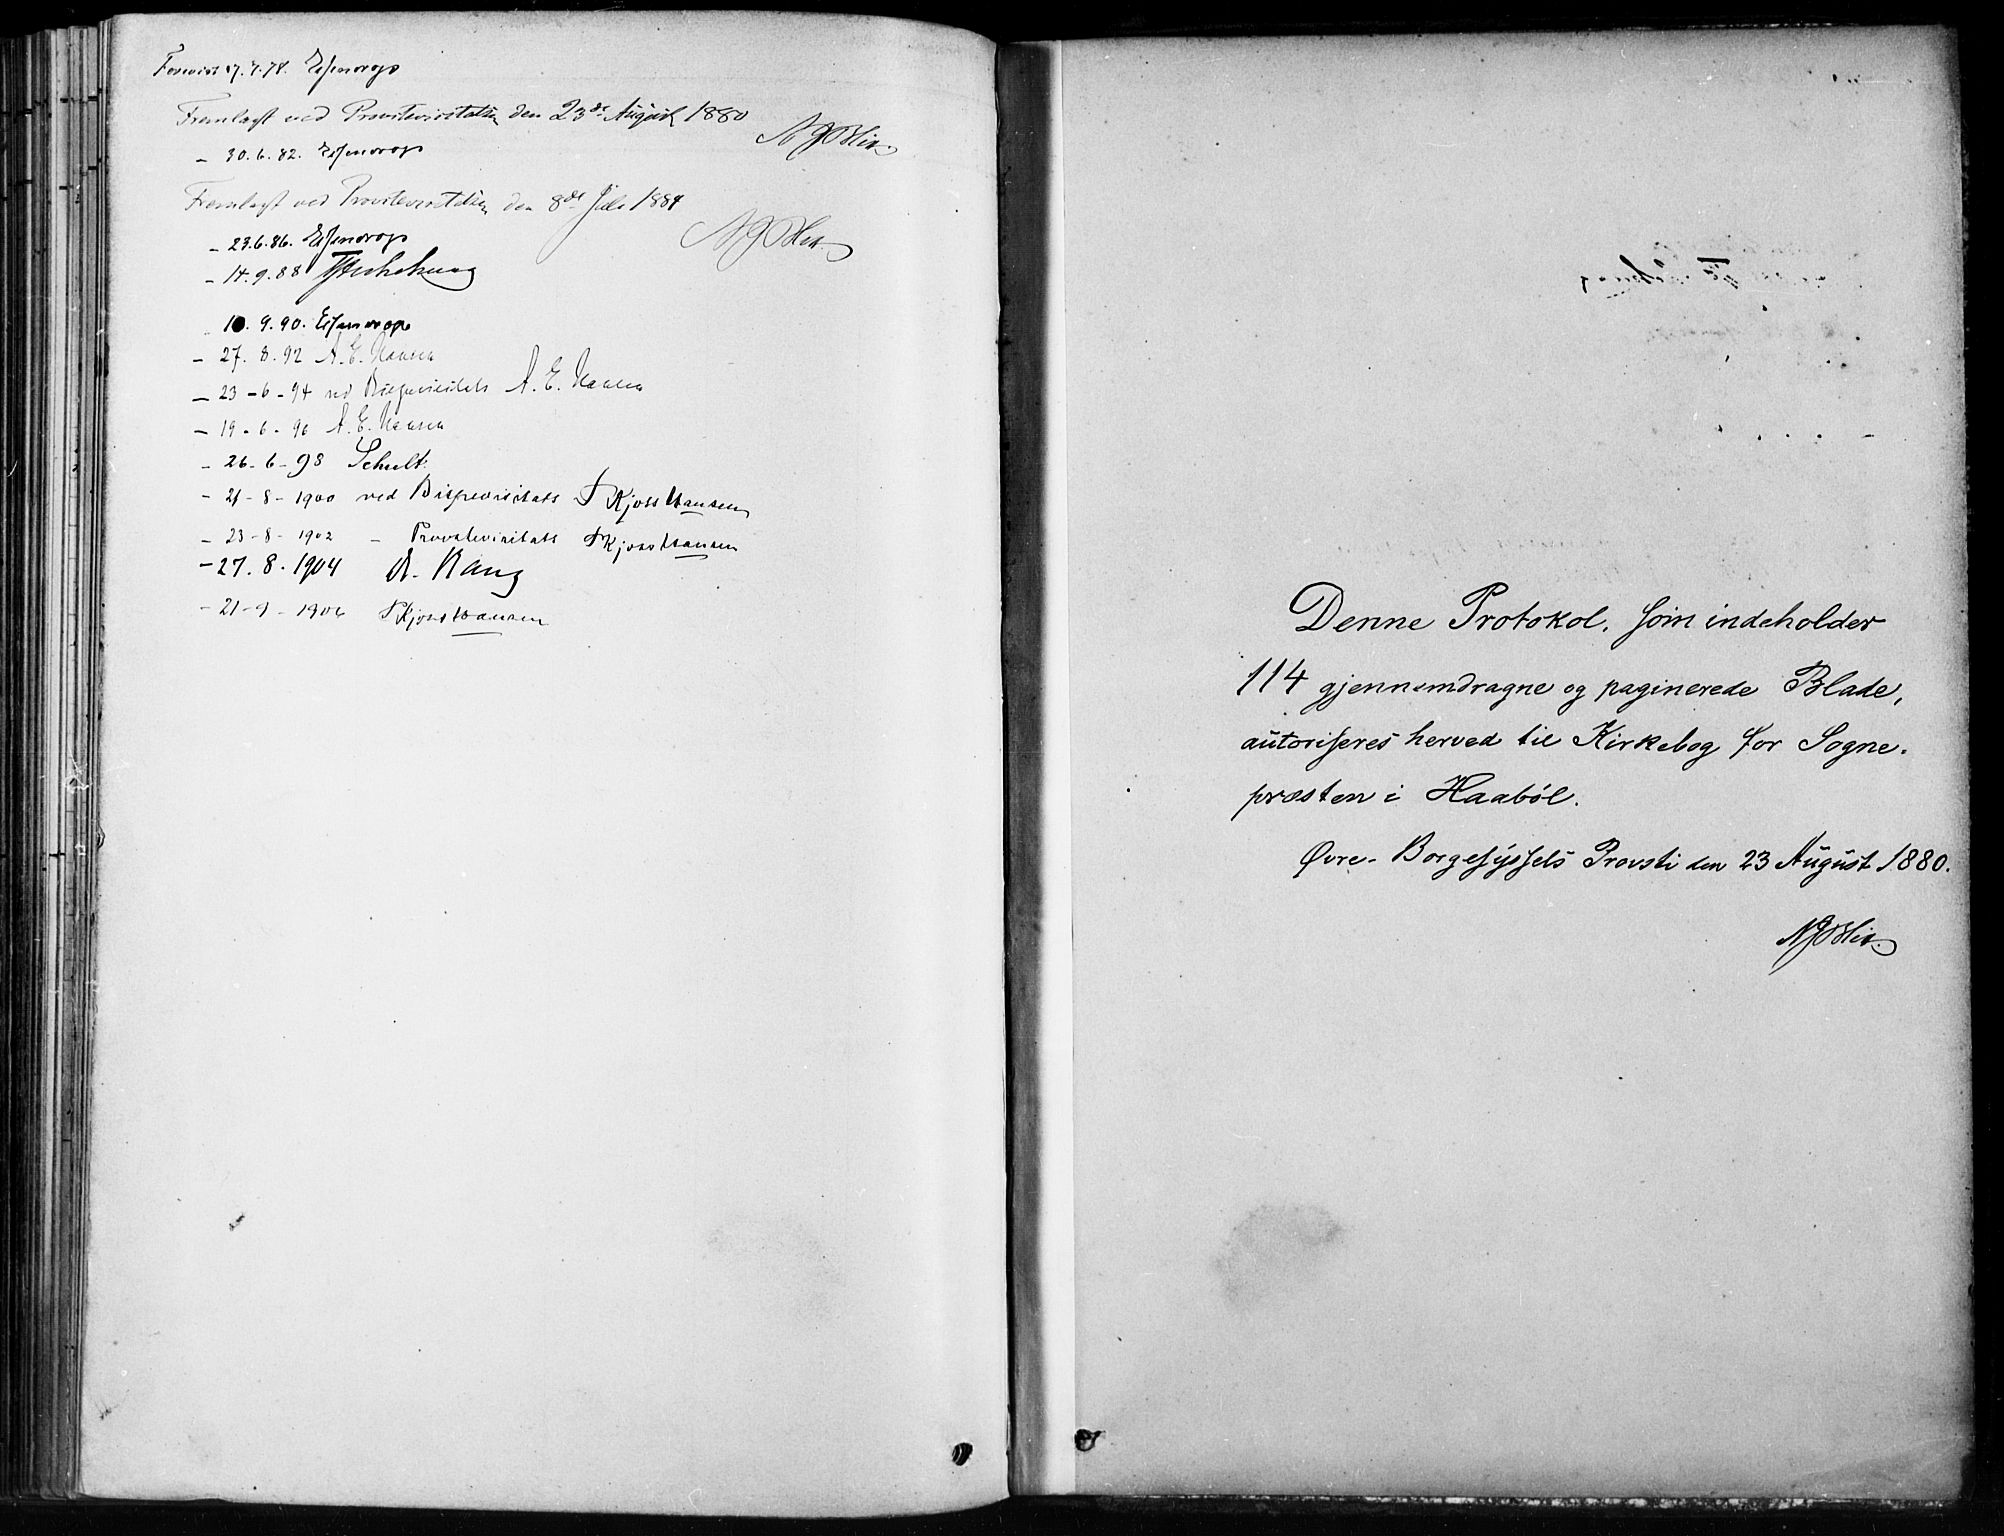 Forevist 17.7.78. Essendrop
Fremlagt ved Provstevisitatsen den 23de August 1880
N J Blix
– 30.6.82. Essendrop
Fremlagt ved Provstevisitatsen den 8de Juli 1884
N J Blix.
– 23.6.86. Essendrop
– 14.9.88
10.9.90. Essendrop
– 27.8.92 A. E. Hansen
– 23-6-94 ved Bispevisitats A. E. Hansen
– 19-6-96 A. E. Hansen
– 26-6-98 Schult
– 21-8-1900 ved Bispevisitats S Kjoss Hansen
– 23-8-1902 – Provstevisitats S Kjoss Hansen
– 27.8.1904 A. Bang
– 21-9-1906 S Kjoss Hansen
Denne Protokol, som indeholder
114 gjennemdragne og paginerede Blade,
autoriseres herved til Kirkebog for Sogne-
præsten i Haabøl.
Øvre-Borgesyssels Provsti den 23 August 1880.
N J Blix.